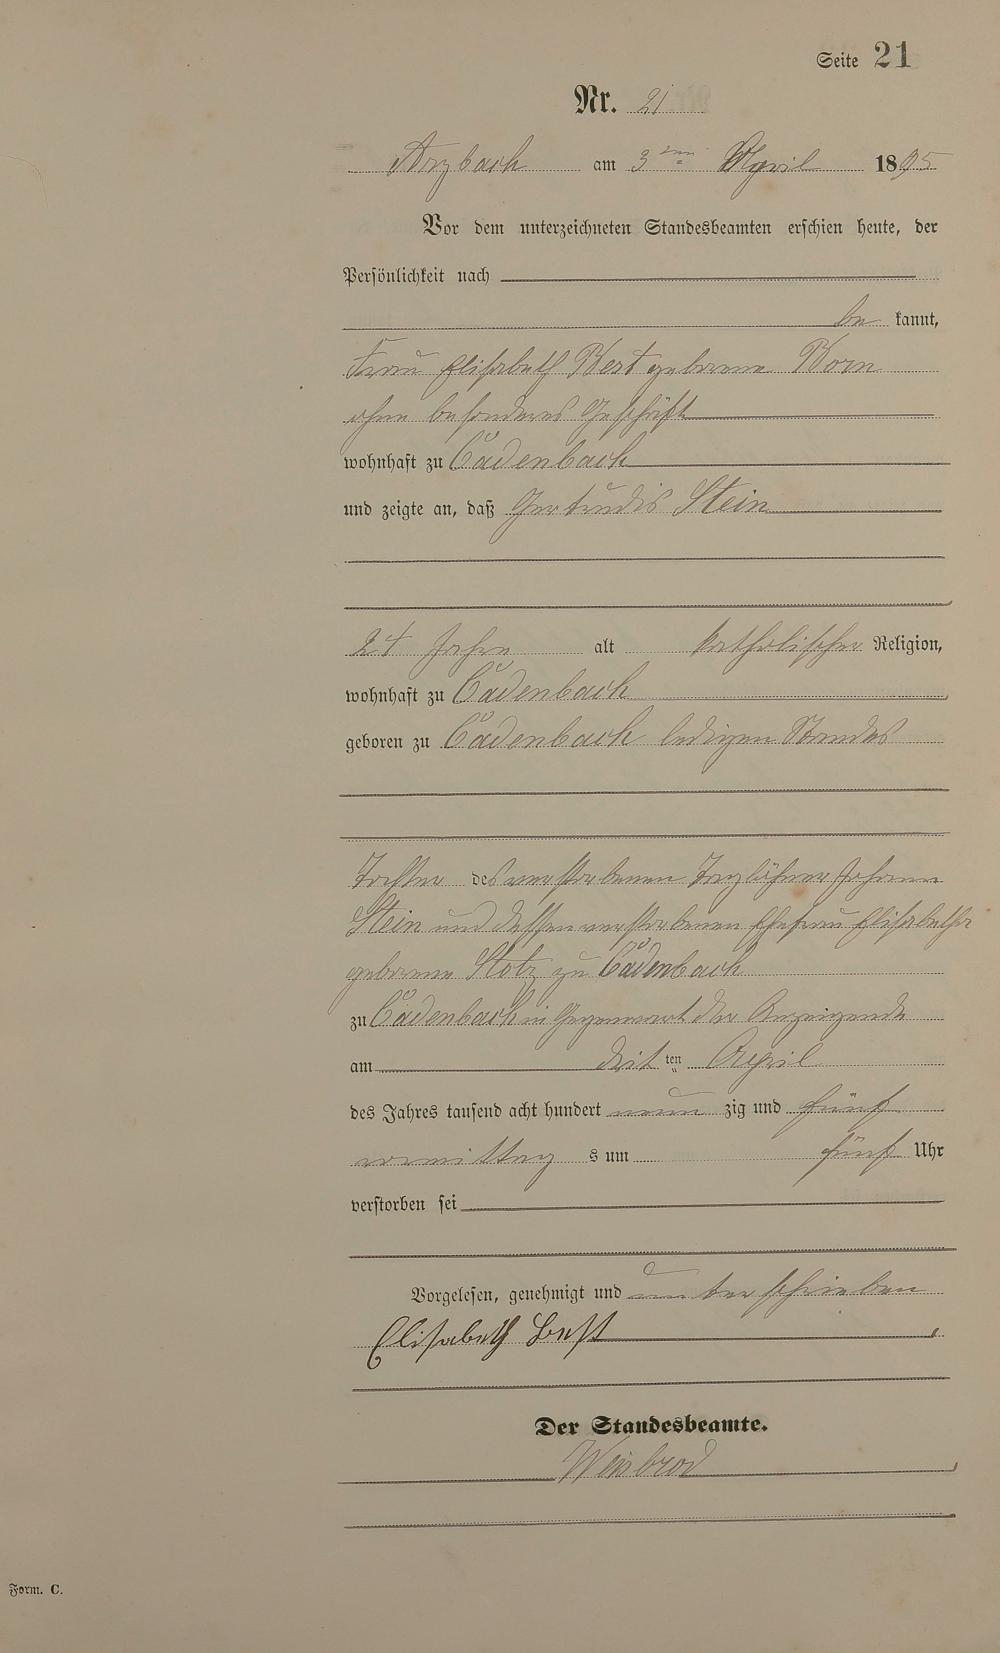 Seite 21
Nr. 21
Arzbach am 3ten April 1895
Vor dem unterzeichneten Standesbeamten erschien heute, der
Persönlichkeit nach
be kannt,
Frau Elisabeth Best geborene Born
ohne besonderes Geschäft
wohnhaft zu Cadenbach
und zeigte an, daß Gertrudis Stein
24 Jahre alt katholischer Religion,
wohnhaft zu Cadenbach
geboren zu Cadenbach ledigen Standes
Tochter des verstorbenen Taglöhner Johann
Stein und dessen verstorbenen Ehefrau Elisabetha
geborene Stotz zu Cadenbach
zu Cadenbach in Gegenwart der Anzeigende
am drit ten April
des Jahres tausend acht hundert neun zig und fünf
vormittag s um fünf Uhr
verstorben sei
Vorgelesen, genehmigt und unterschrieben
Elisabeth Best
Der Standesbeamte.
Weinbrod
Form. C.